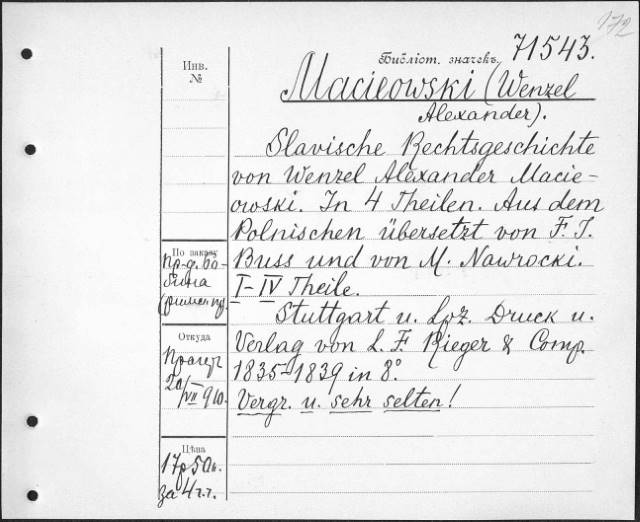 172
Библіот. значекъ 71543.
Инв.
№
Macieowski (Wenzel
Alexander).
Slavische Rechtsgeschichte
von Wenzel Alexander Macie-
owski. In 4 Theilen. Aus dem
Polnischen übersetzt von F. J.
Buss und von M. Nawrocki.
I-IV Theile.
Stuttgart u. Lpz. Druck u.
Verlag von L. F. Rieger & Comp.
1835-1839 in 8°.
Vergr. u. sehr selten!
По заказу
пр-д. Бо-
бина
Откуда
20/VII 910.
Цѣна
17р 50к.
за 4 т.т.